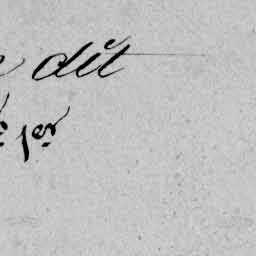 dit
1er